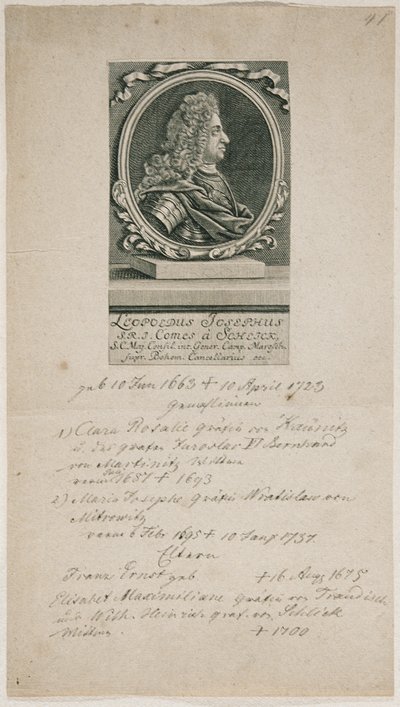 41
LEOPOLDUS JOSEPHUS
S.R.I. Comes à SCHLICK,
S.C. Maj. Consil. int. Gener. Camp. Maresch.
supr. Bohem. Cancellarius etc.
geb 10 Jun 1663 + 10 April 1723
Gemahlinen
1) Clara Rosalie Gräfin von Kaunitz
d. des Grafen Jaroslav VI Bernhard
von Martinitz Wittwe
verm 1687 + 1693
2) Maria Josepha Gräfin Wratislaw von
Mitrowitz
verm 6 Feb 1695 + 10 1737
Eltern
Franz Ernst geb + 16 Aug 1675
Elisabet Maximiliane Gräfin von
Wilh. Heinrich Graf. von Schlick
Wittwe + 1700